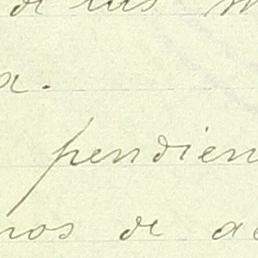 de las
a.
pendien
nos de ac